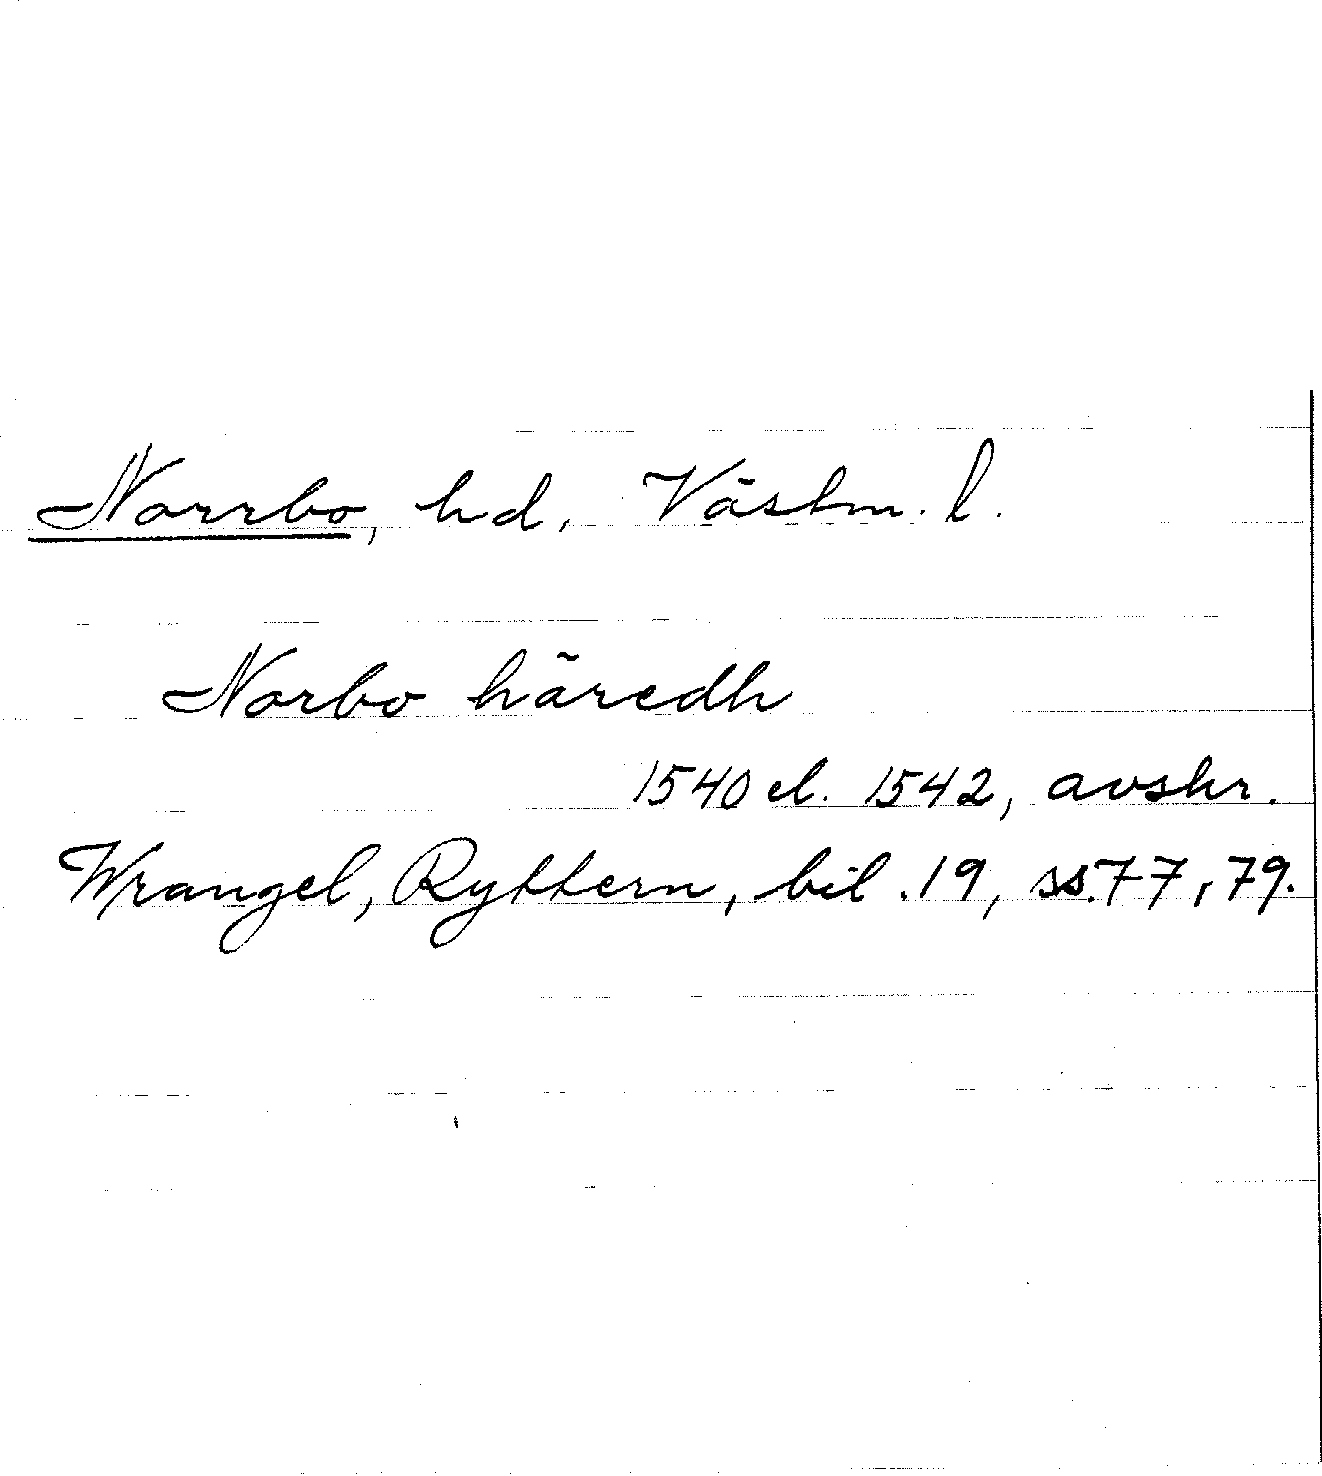 Norrbo, hd, Västm. l.
Norbo häredh
1540 el. 1542, avskr.
Wrangel, Ryttern, bil. 19, ss. 77, 79.